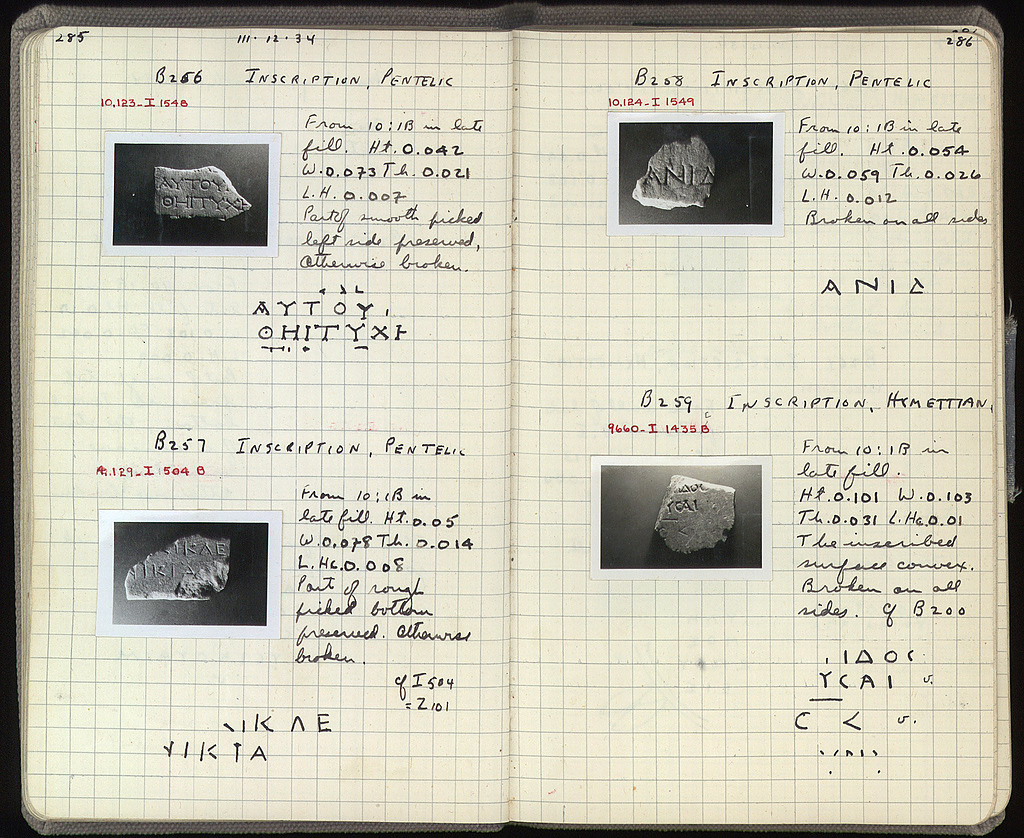 285
III · 12 · 34
B256 INSCRIPTION, PENTELIC
10,123-I 1548
From 10:1B in late
fill. Ht. 0.042
W. 0.073 Th. 0.021
L.H. 0.007
Part of smooth picked
left side preserved,
Otherwise broken.
ΑΥΤΟΥ
ΘΗΙΤΥΧΗ
ΑΥΤΟΥ
ΘΗΙΤΥΧ
B257 INSCRIPTION, PENTELIC
129-I 504 B
From 10:1B in
late fill. Ht. 0.05
W. 0.078 Th. 0.014
L.Hc. 0.008
Part of rough
picked bottom
preserved. Otherwise
broken.
ΙΚΛΕ
ΙΚΙΑ
cf I 504
= Z 101
ΙΚΛΕ
ΙΚΙΑ
286
B258 INSCRIPTION, PENTELIC
10,124-I 1549
From 10:1B in late
fill. Ht. 0.054
W. 0.059 Th. 0.026
L.H. 0.012
Broken on all sides
ΑΝΙΔ
ΑΝΙΔ
B259 INSCRIPTION, HYMETTIAN,
9660-I 1435 B
c
From 10:1B in
late fill.
Ht. 0.101 W. 0.103
Th. 0.031 L.Hc. 0.01
The inscribed
surface convex.
Broken on all
sides. cf B200
ΙΔΟϹ
ΥϹΑΙ
ΙΔΟϹ
ΥϹΑΙ v.
Ϲ < v.